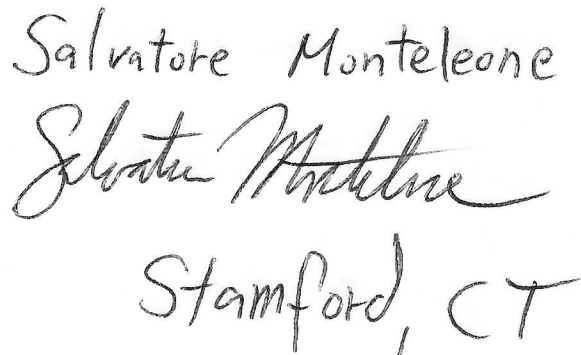 Salvatore Monteleone
Salvatore Monteleone
Stamford, CT